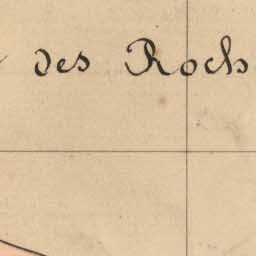 des Roch